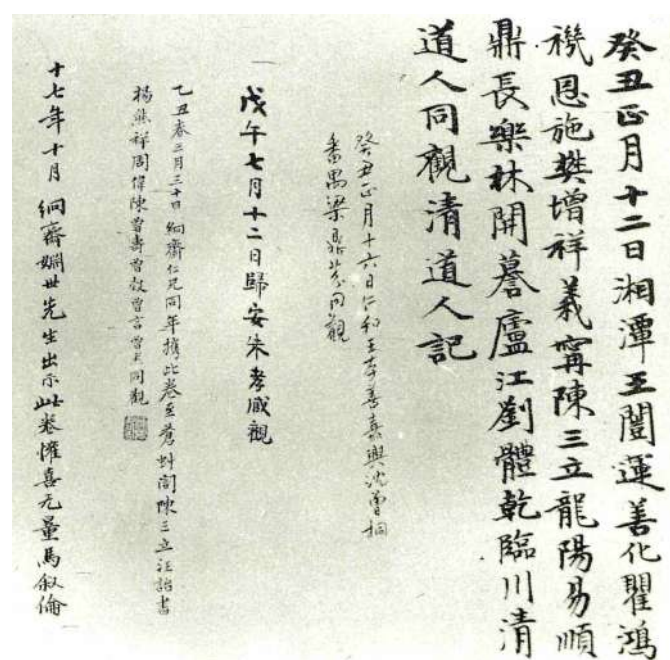 癸丑正月十二日湘潭王闓運善化瞿鴻
禨恩施樊增祥義寧陳三立龍陽易順
鼎長樂林開謩廬江劉體乾臨川清
道人同觀清道人記
癸丑正月十六日仁和王存善嘉興沈曾桐
番禺梁鼎芬同觀
戊午七月十二日歸安朱孝臧觀
乙丑春三月三十日絅齋仁兄同年攜此卷至蒼虯閣陳三立汪詒書
楊熊祥周偉陳曾壽曾穀曾言曾同觀
十七年十月絅齋姻世先生出示此卷懽喜无量馬叙倫